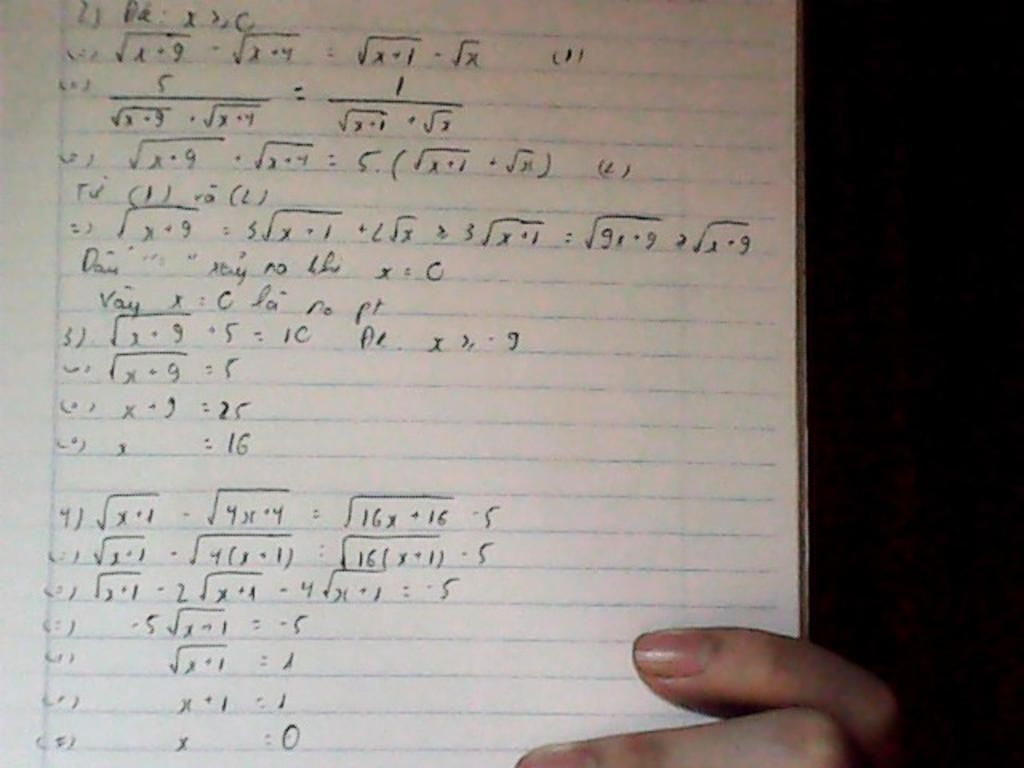 2) Đk: x ≥ 0
<=> √(x+9) - √(x+4) = √(x+1) - √x (1)
<=> 5/(√(x+9) + √(x+4)) = 1/(√(x+1) + √x)
<=> √(x+9) + √(x+4) = 5.(√(x+1) + √x) (2)
Từ (1) và (2)
=> √(x+9) = 3√(x+1) + 2√x ≥ 3√(x+1) = √(9x+9) ≥ √(x+9)
Dấu "=" xảy ra khi x = 0
Vậy x = 0 là no pt
3) √(x+9) + 5 = 10 Đk: x ≥ -9
<=> √(x+9) = 5
<=> x+9 = 25
<=> x = 16
4) √(x+1) - √(4x+4) = √(16x+16) - 5
<=> √(x+1) - √(4(x+1)) = √(16(x+1)) - 5
<=> √(x+1) - 2√(x+1) - 4√(x+1) = -5
<=> -5√(x+1) = -5
<=> √(x+1) = 1
<=> x+1 = 1
<=> x = 0